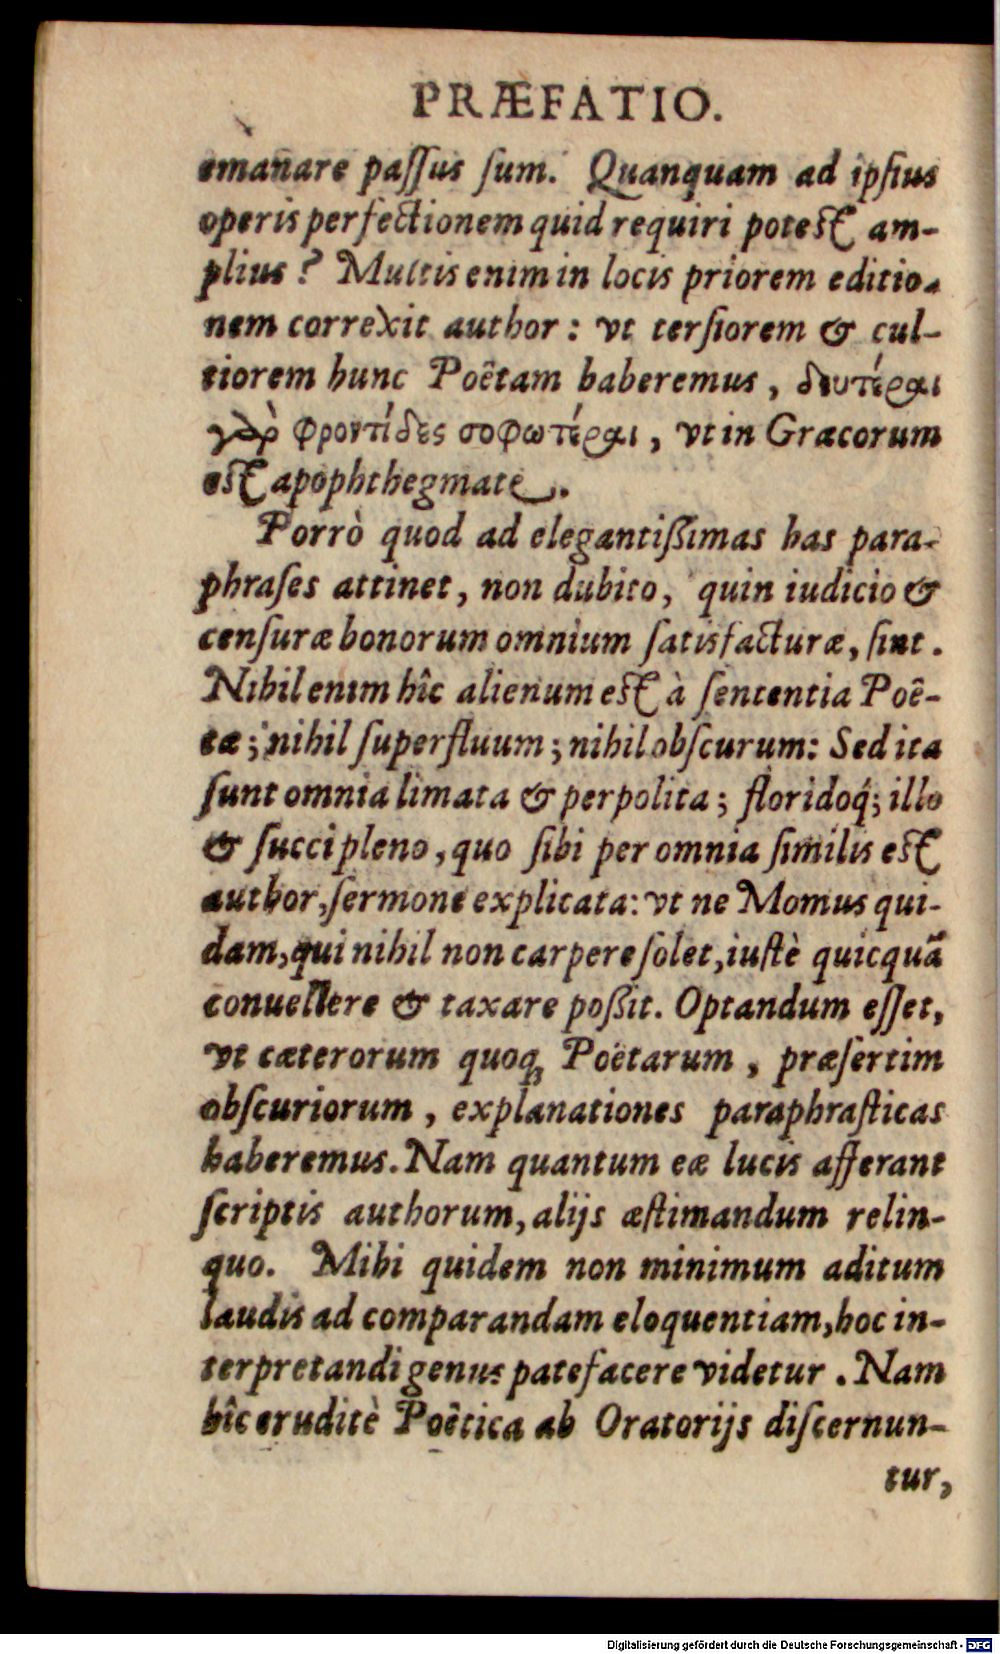 PRÆFATIO.
emanare paſſus ſum. Quanquam ad ipſius
operis perfectionem quid requiri poteſt am-
plius? Multis enim in locis priorem editio-
nem correxit author: vt terſiorem & cul-
tiorem hunc Poëtam haberemus, δευτέραι
γὰρ φροντίδες σοφωτέραι, vt in Græcorum
eſt apophthegmate.
Porrò quod ad elegantiſſimas has para-
phraſes attinet, non dubito, quin iudicio &
cenſuræ bonorum omnium ſatisfacturæ, ſint.
Nihil enim hîc alienum eſt à ſententia Poë-
tæ; nihil ſuperfluum; nihil obſcurum: Sed ita
ſunt omnia limata & perpolita; floridoq́; illo
& ſucci pleno, quo ſibi per omnia ſimilis eſt
author, ſermone explicata: vt ne Momus qui-
dam, qui nihil non carpere ſolet, iuſtè quicquã
conuellere & taxare poßit. Optandum eſſet,
vt cæterorum quoq; Poëtarum, præſertim
obſcuriorum, explanationes paraphraſticas
haberemus. Nam quantum eæ lucis afferant
ſcriptis authorum, alijs æſtimandum relin-
quo. Mihi quidem non minimum aditum
laudis ad comparandam eloquentiam, hoc in-
terpretandi genus patefacere videtur. Nam
hîc eruditè Poëtica ab Oratorijs diſcernun-
tur,
Digitalisierung gefördert durch die Deutsche Forschungsgemeinschaft - DFG